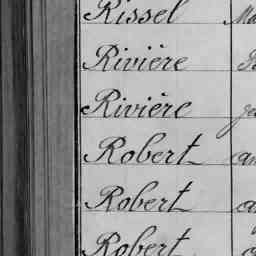 Rissel
Rivière
Rivière
Robert
Robert
Robert